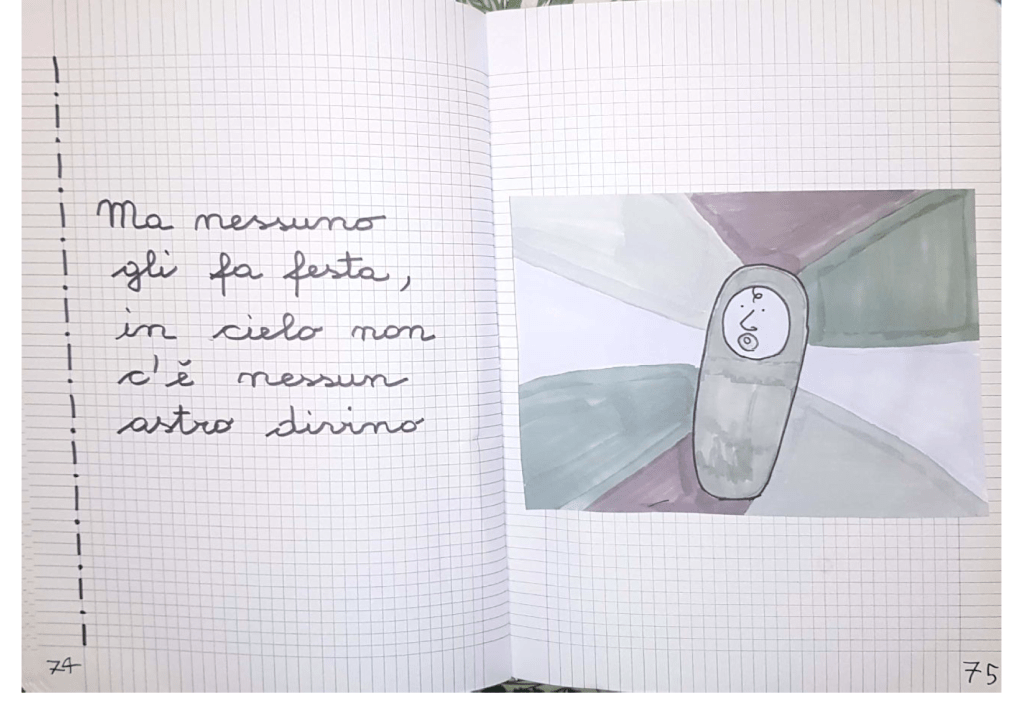 Ma nessuno
gli fa festa,
in cielo non
c'è nessun
astro divino
74
75